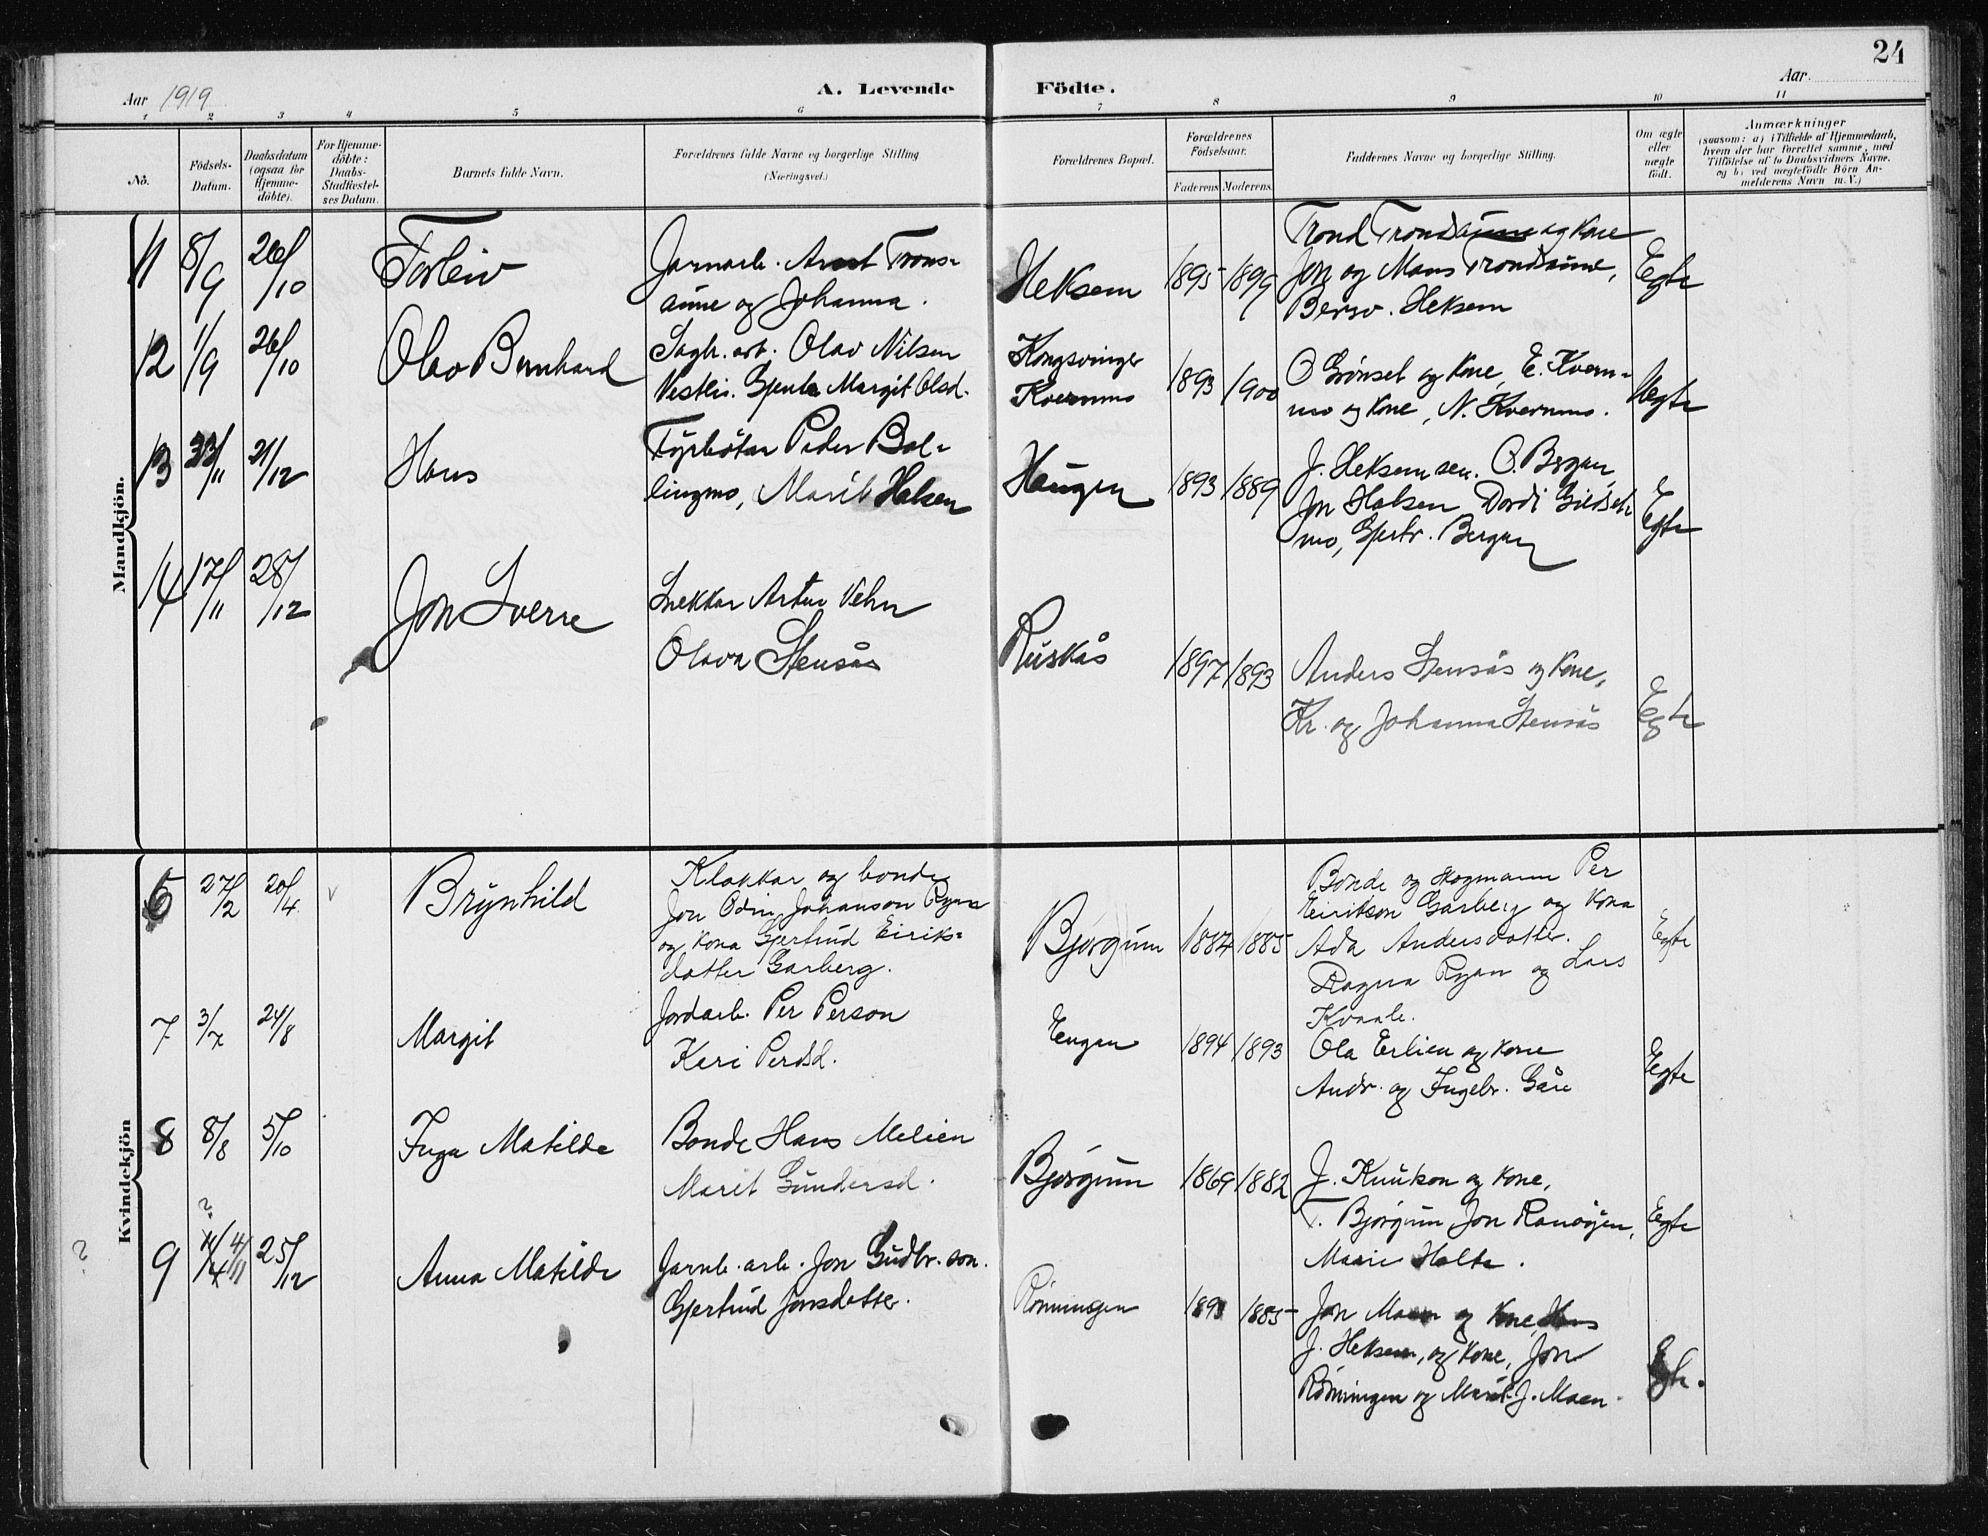 24
Aar 1919
A. Levende Födte.
Aar
1 2 3 4 5 6 7 8 9 10 11
No.
Födsels-
Datum.
Daabsdatum
(ogsaa for
Hjemme-
döbte).
For Hjemme-
döbte:
Daabs-
Stadfæstel-
ses Datum.
Barnets fulde Navn.
Forældrenes fulde Navne og borgerlige Stilling
(Næringsvei.)
Forældrenes Bopæl.
Forældrenes
Födselsaar.
Faderens Moderens
Faddernes Navne og borgerlige Stilling.
Om ægte
eller
uægte
födt.
Anmærkninger
(saasom: a) i Tilfælde af Hjemmedaab,
hvem der har forrettet samme, med
Tilföielse af to Daabsvidners Navne,
og b) ved uægtefödte Börn An-
melderens Navn m. V.)
Mandkjön.
11 8/9 26/10 Torleiv
Jarnarb. Arnt Trons-
aune og Johanna.
Heksem 1895 1899
Trond Trondsaune og kone
Jon og Mans Trondsaune,
Bersv. Heksem
Egte
12 1/9 26/10 Olav Bernhard
Sagb. arb. Olav Nilsen
Vestli. Gjente Margit Olsd.
Kongsvinger
Kvernmo
1893 1900
O Grönset og kone, E. Kvern-
mo og kone, N. Kvernmo.
Uegte
13 23/11 21/12 Hans
Fyrböter Peder Bol-
lingmo, Marit Halsen
Haugen 1893 1889
J. Heksem sen. O. Bergan,
Jon Halsen Dordi Gildset
mo, Gjertr. Bergan
Egte
14 17/11 28/12 Jon Sverre
Snekkar Artur Vehn
Olava Stensås
Ruskås 1897 1893
Anders Stensås og kone,
Kr. og Johanna Stensås
Egte
Kvindekjön
6 27/2 20/4 v Brynhild
Klokkar og bonde
Jon Odin Johanson Ryan
og kona Gjertrud Eiriks-
datter Garberg.
Bjørgum 1884 1885
Bonde og skogmann Per
Eirikson Garberg og kona
Ada Andersdatter.
Ragna Ryan og Lars
Kvaale.
Egte
7 3/7 24/8 Margit
Jordarb. Per Person
Kari Persd.
Engan 1894 1893
Ola Erlien og kone
Andr. og Ingebr. Gåre
Egte
8 8/8 5/10 Inga Matilde
Bonde Hans Melien
Marit Gundersd.
Bjørgum 1869 1882
J. Knutson og kone,
T. Bjørgum, Jon Ranøyen,
Marie Holte.
Egte
?
? 9 4/11 25/12 Anna Matilde
Jarnb. arb. Jon Gudbr. son.
Gjertrud Jonsdatter.
Rønningen 1885
Jon Moen og kone, Hans
J. Heksem, og kone, Jon
Rønningen og Marit J. Moen.
Egte.